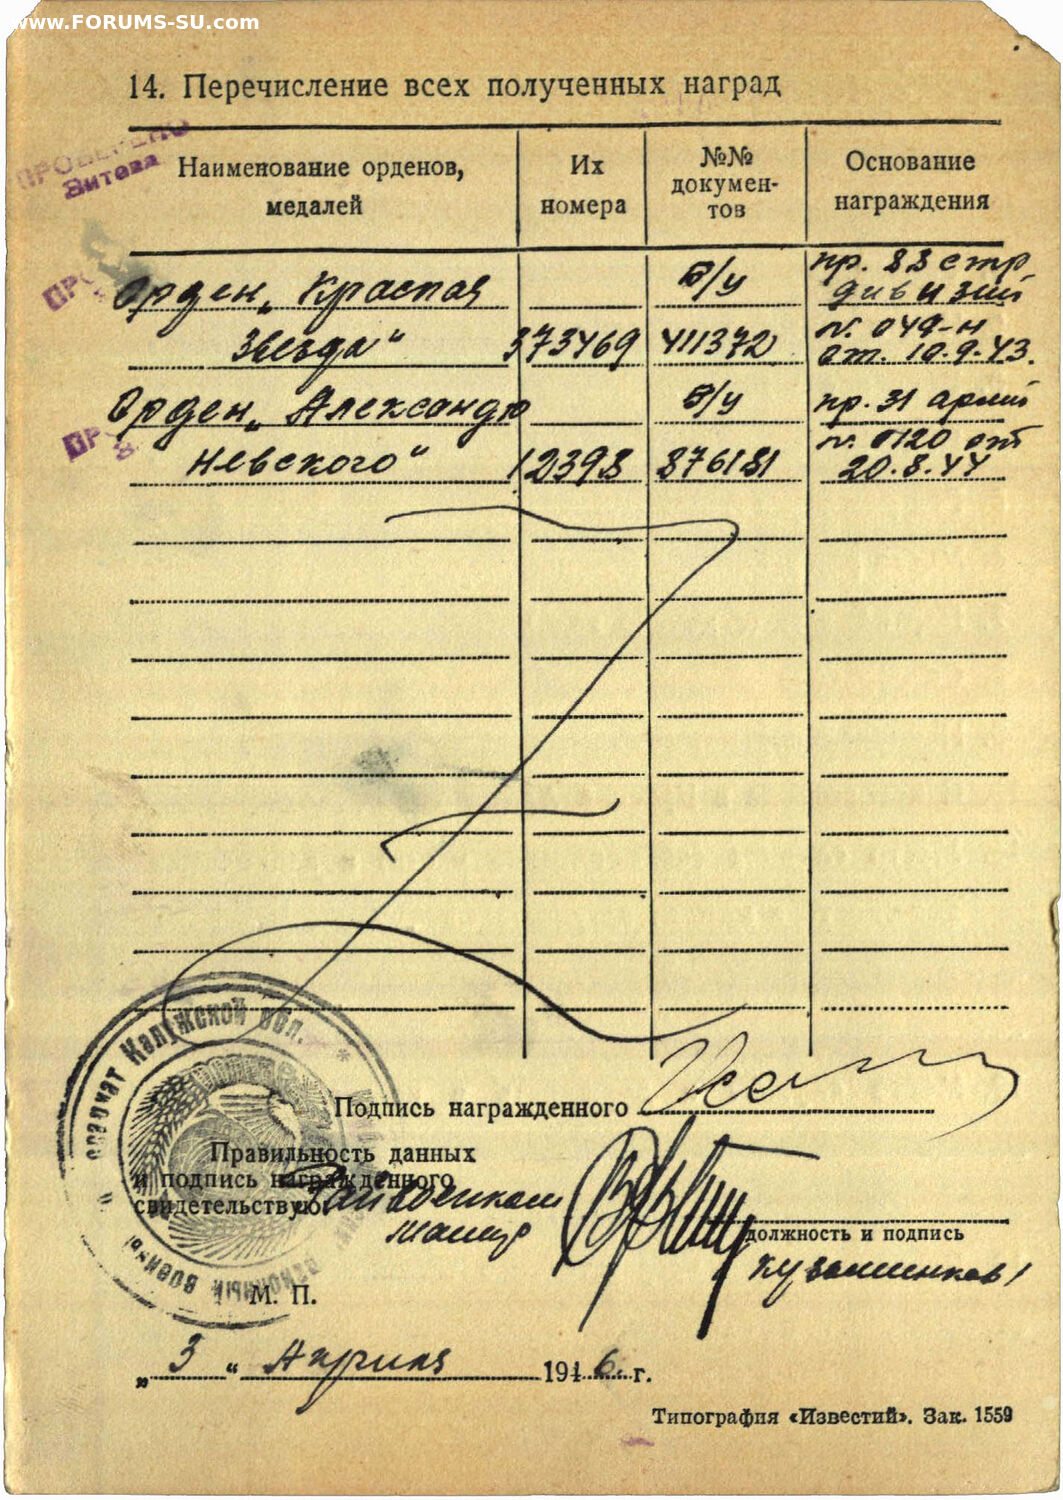 www.FORUMS-SU.com
14. Перечисление всех полученных наград
ПРОВЕРЕНО
Витева
Наименование орденов,
медалей
Их
номера
№№
докумен-
тов
Основание
награждения
Орден „Красная
Звезда“ 373469
в/у
411372
пр. 88 стр
дивизии
№ 049-н
от. 10.9.43.
Орден „Александр
Невского“ 12398
в/у
876181
пр. 31 армии
№ 0120 от
20.8.44
Подпись награжденного
Правильность данных
и подпись награжденного
свидетельствую:
Райвоенком
майор
должность и подпись
М. П.
Калужской обл.
„3“ Апреля 1946 г.
Типография «Известий». Зак. 1559